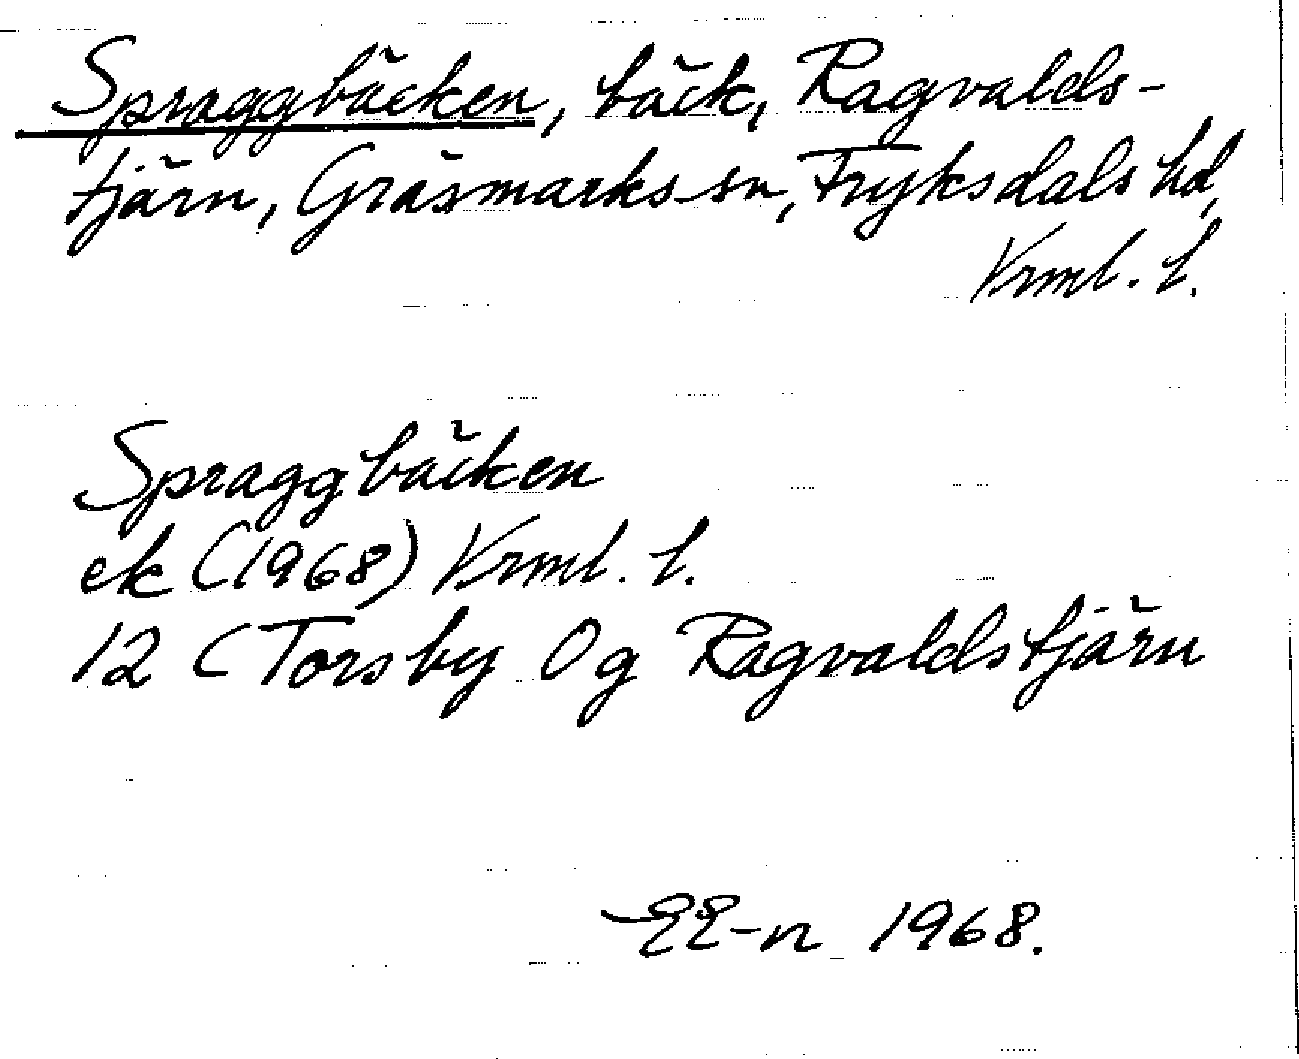 Spraggbäcken, bäck, Ragvalds-
tjärn, Gräsmarks sn, Fryksdals hd,
Vrml. l.
Spraggbäcken
ek (1968) Vrml. l.
12 C Torsby Og Ragvaldstjärn
EE-n 1968.